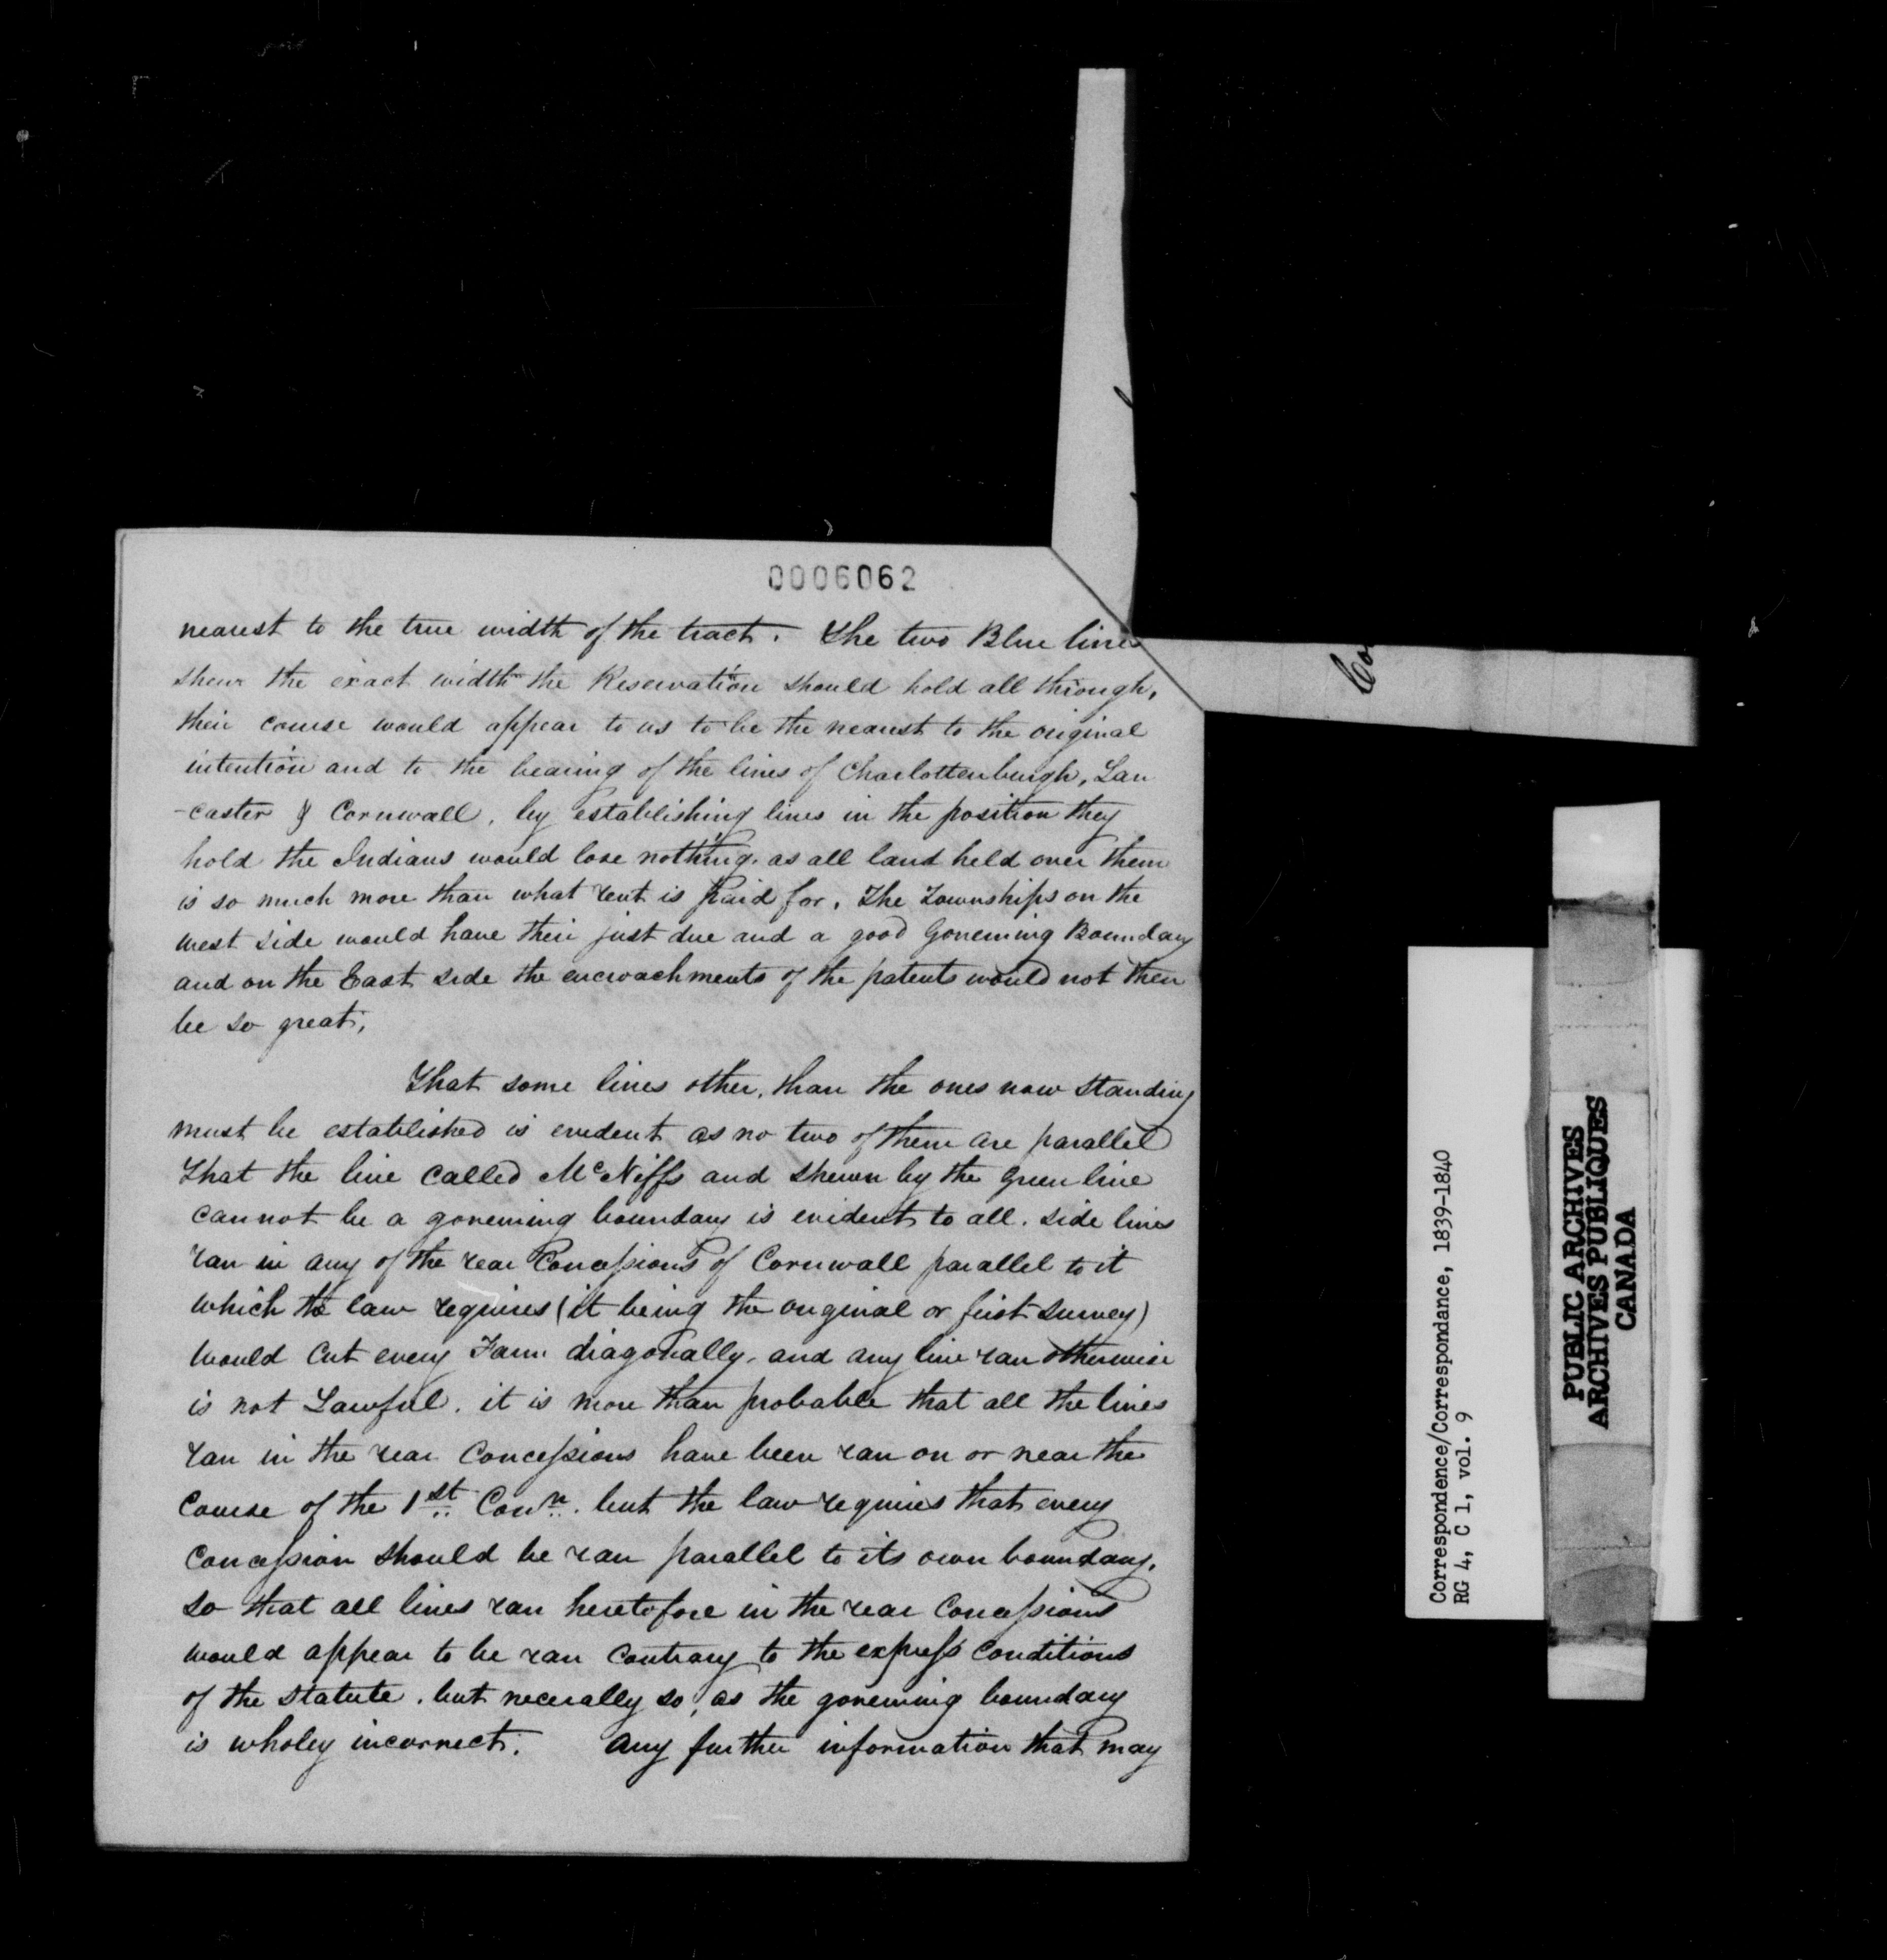 0006062
nearest to the true width of the tract. The two Blue lines
shew the exact width the Reservation should hold all through,
their course would appear to us to be the nearest to the original
intention and to the bearing of the lines of Charlottenburgh, Lan
-caster & Cornwall, by establishing lines in the position they
hold the Indians would lose nothing, as all land held over them
is so much more than what rent is paid for. The Townships on the
west side would have their just due and a good Governing Boundary
and on the East side the encroachments of the patents would not then
be so great,
That some lines other, than the ones now standing
must be established is evident as no two of them are parallel
That the line called McNiffs and shewn by the Green line
cannot be a governing boundary is evident to all. side lines
ran in any of the rear Concessions of Cornwall parallel to it
which the law requires (it being the original or first survey)
would cut every Farm diagonally, and any line ran otherwise
is not Lawful. it is more than probable that all the lines
ran in the rear Concessions have been ran on or near the
Course of the 1st Conn. but the law requires that every
Concession should be ran parallel to its own boundary,
so that all lines ran heretofore in the rear Concessions
would appear to be ran contrary to the express conditions
of the statute. but necerally so, as the governing boundary
is wholey incorrect. Any further information that may
Co
Correspondence/Correspondance, 1839-1840
RG 4, C 1, vol. 9
PUBLIC ARCHIVES
ARCHIVES PUBLIQUES
CANADA